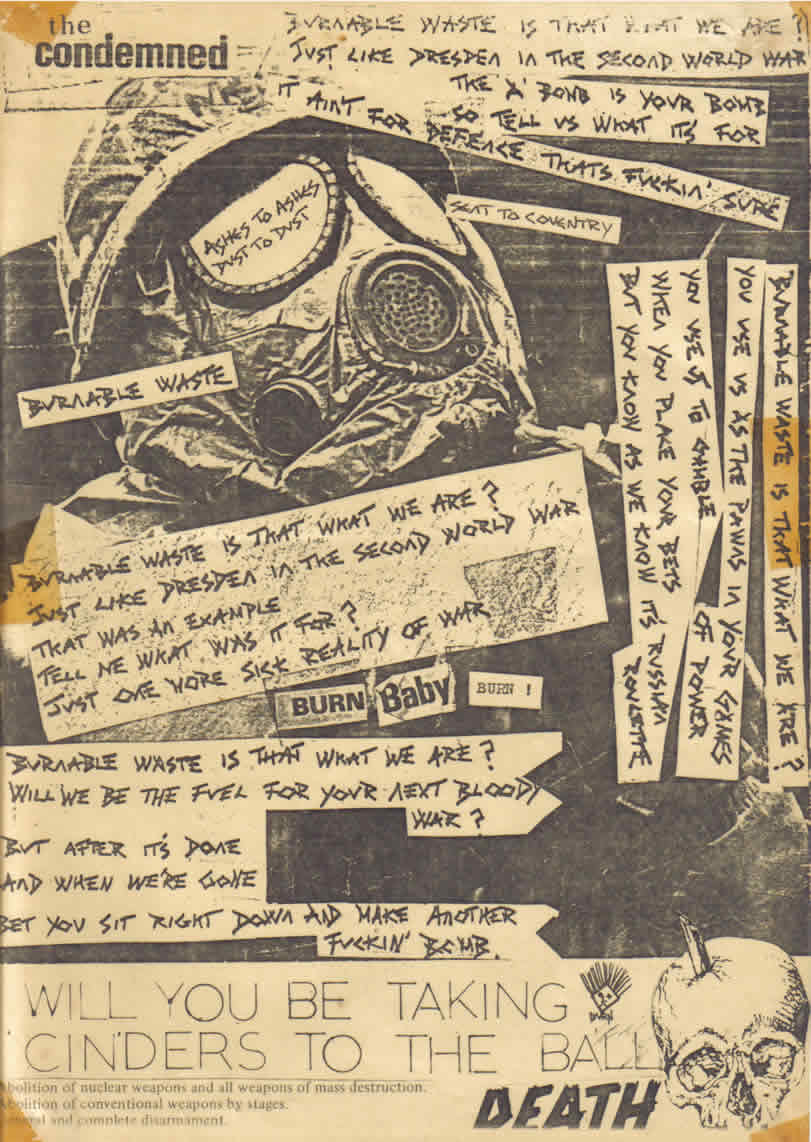 the
condemned
BURNABLE WASTE IS THAT WHAT WE ARE?
JUST LIKE DRESDEN IN THE SECOND WORLD WAR
THE 'A' BOMB IS YOUR BOMB
SO TELL US WHAT IT'S FOR
IT AIN'T FOR DEFENCE THATS FUCKIN' SURE
ASHES TO ASHES
DUST TO DUST
SENT TO COVENTRY
BURNABLE WASTE
BURNABLE WASTE IS THAT WHAT WE ARE?
YOU USE US AS THE PAWNS IN YOUR GAMES
OF POWER
YOU USE US TO GAMBLE
WHEN YOU PLACE YOUR BETS
BUT YOU KNOW AS WE KNOW IT'S RUSSIAN
ROULETTE
BURNABLE WASTE IS THAT WHAT WE ARE?
JUST LIKE DRESDEN IN THE SECOND WORLD WAR
THAT WAS AN EXAMPLE
TELL ME WHAT WAS IT FOR?
JUST ONE MORE SICK REALITY OF WAR
BURN Baby BURN !
BURNABLE WASTE IS THAT WHAT WE ARE?
WILL WE BE THE FUEL FOR YOUR NEXT BLOODY
WAR?
BUT AFTER IT'S DONE
AND WHEN WE'RE GONE
BET YOU SIT RIGHT DOWN AND MAKE ANOTHER
FUCKIN' BOMB.
WILL YOU BE TAKING
CINDERS TO THE BALL
Abolition of nuclear weapons and all weapons of mass destruction.
Abolition of conventional weapons by stages.
General and complete disarmament.
DEATH